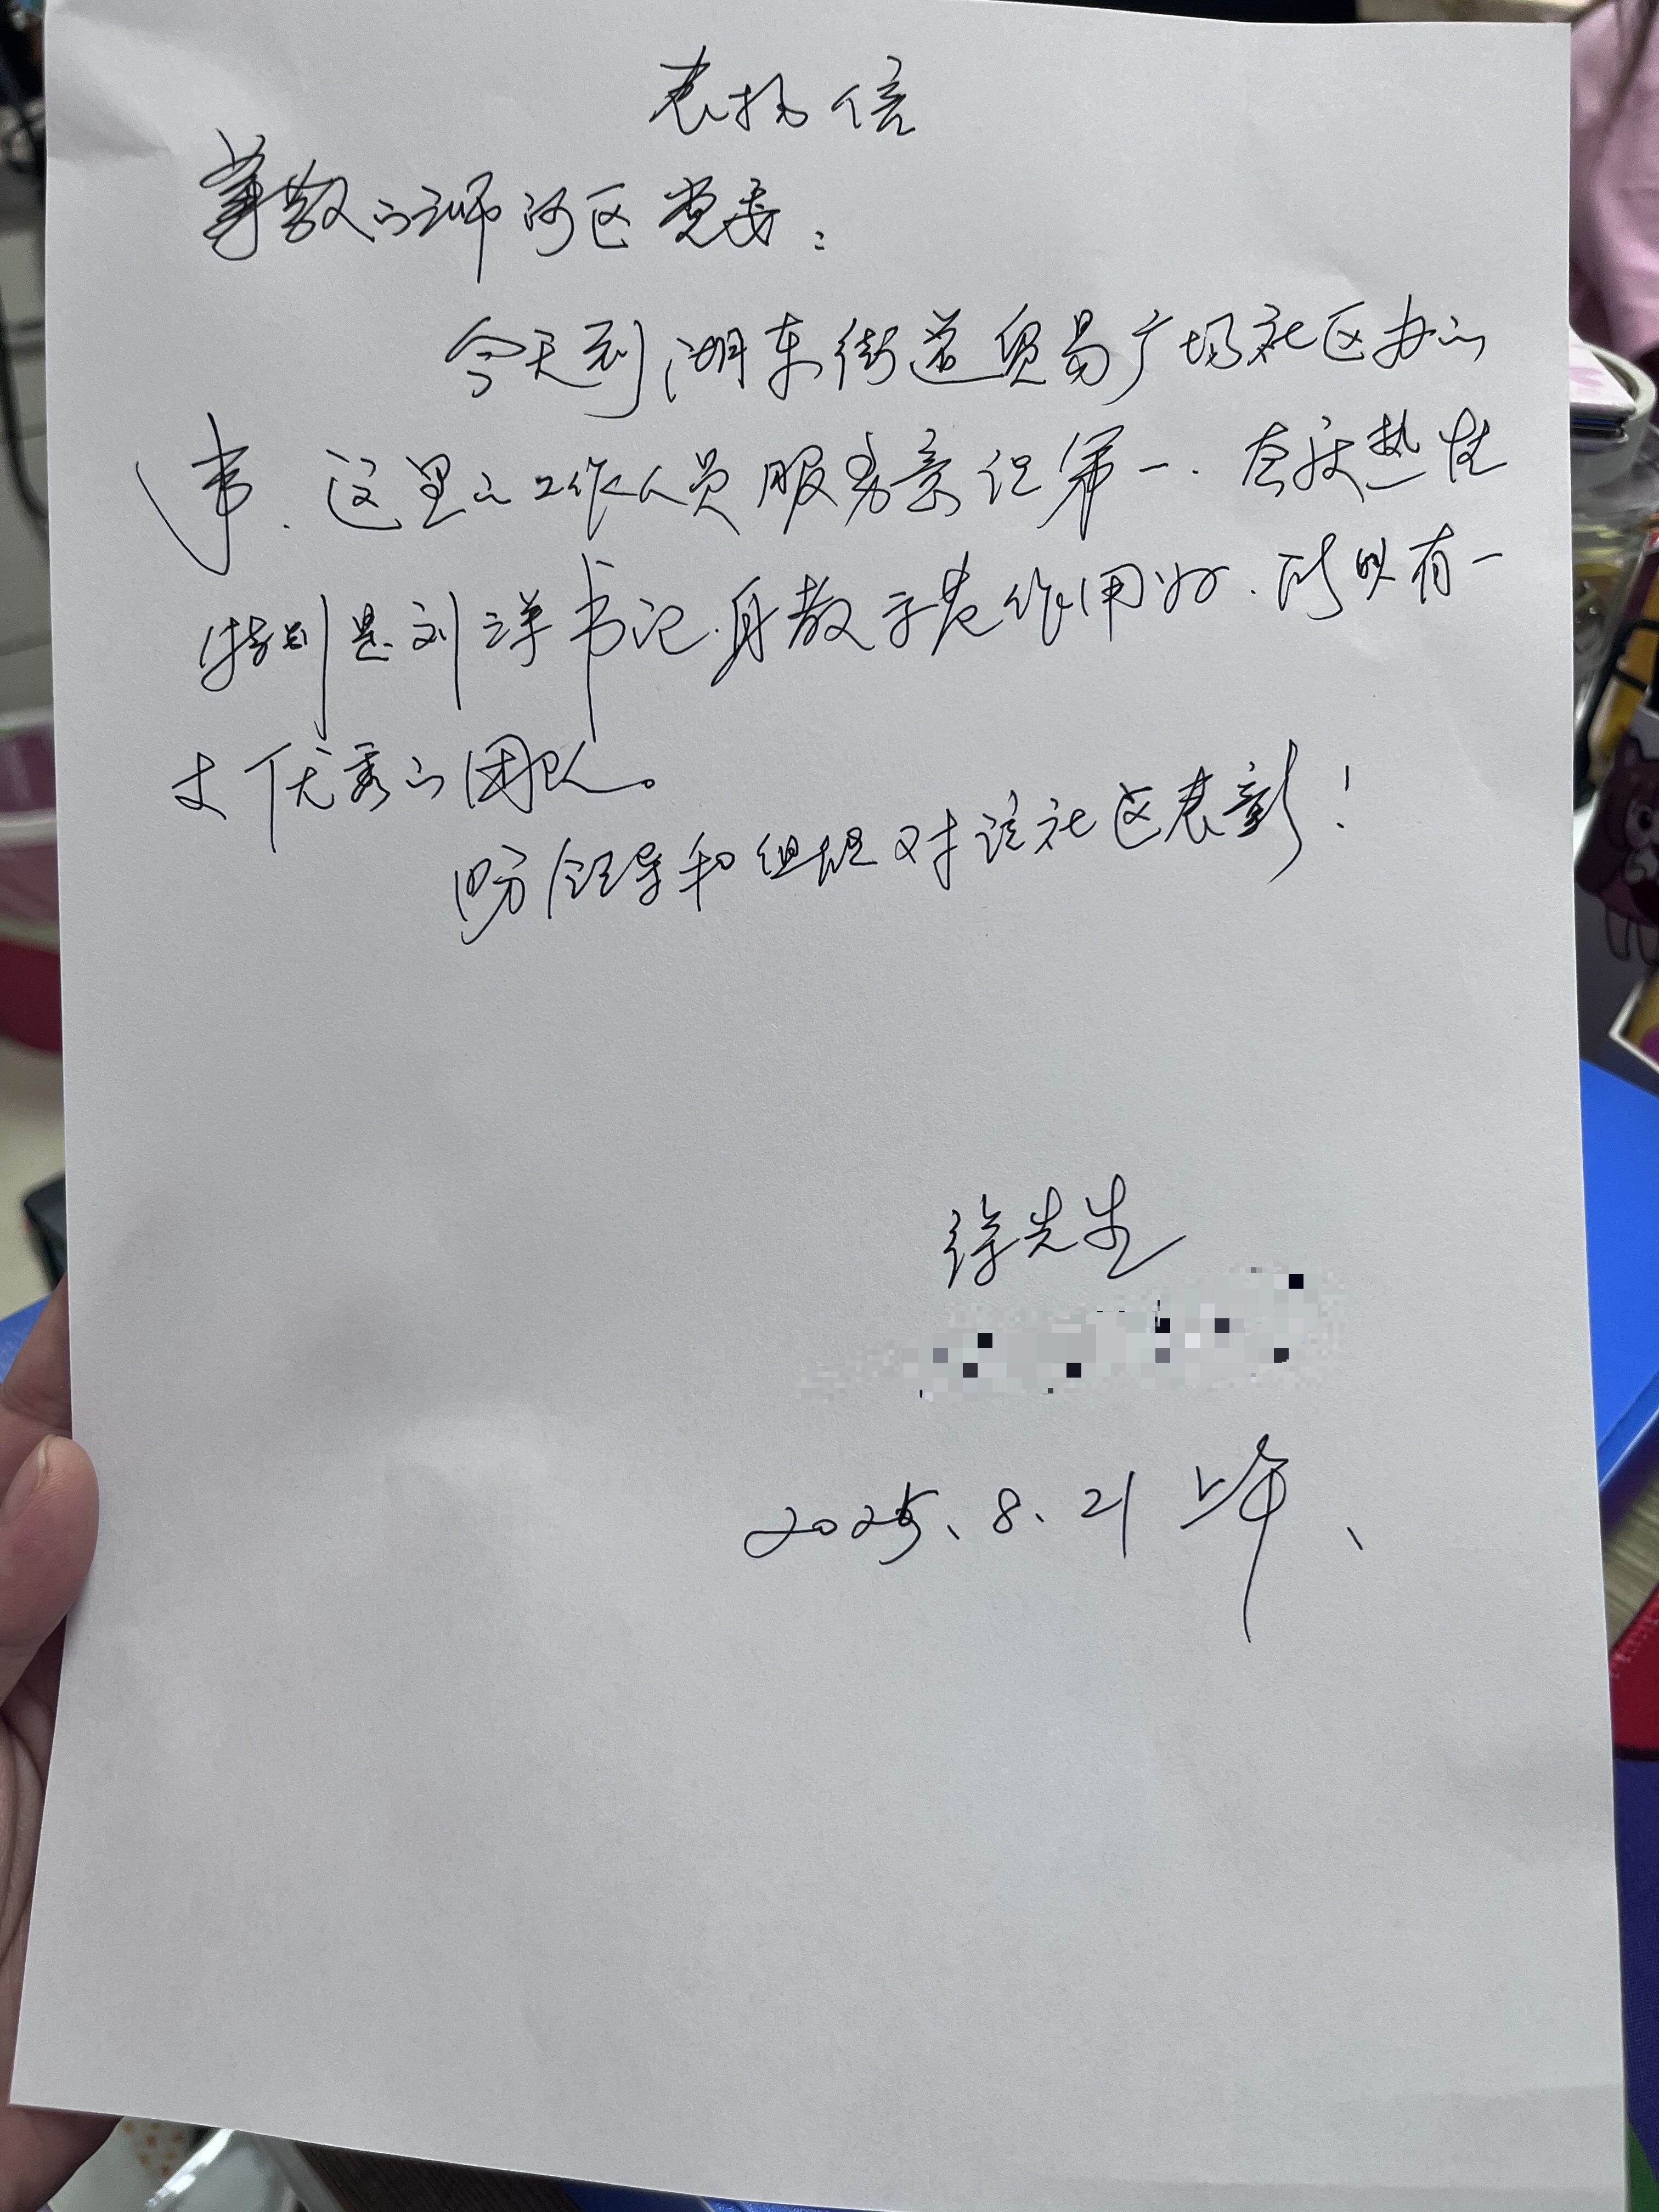 表扬信
尊敬的浉河区党委：
今天到湖东街道贸易广场社区办
事、这里的工作人员服务意识第一、态度热情
特别是刘洋书记、身教示范作用好、所以有一
支优秀的团队。
盼领导和组织对该社区表彰！
徐先生
2025、8、21 上午、